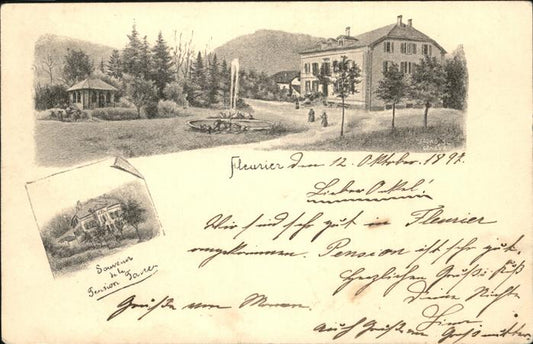 Fleurier den 12. Oktober 1897.
Lieber Onkel!
Wir sind sehr gut in Fleurier
angekommen. Pension ist sehr gut.
Herzlichen Grüße
Deine Nichte
Grüße von
auch Grüße an Großmutter.
Souvenir
de la
Pension